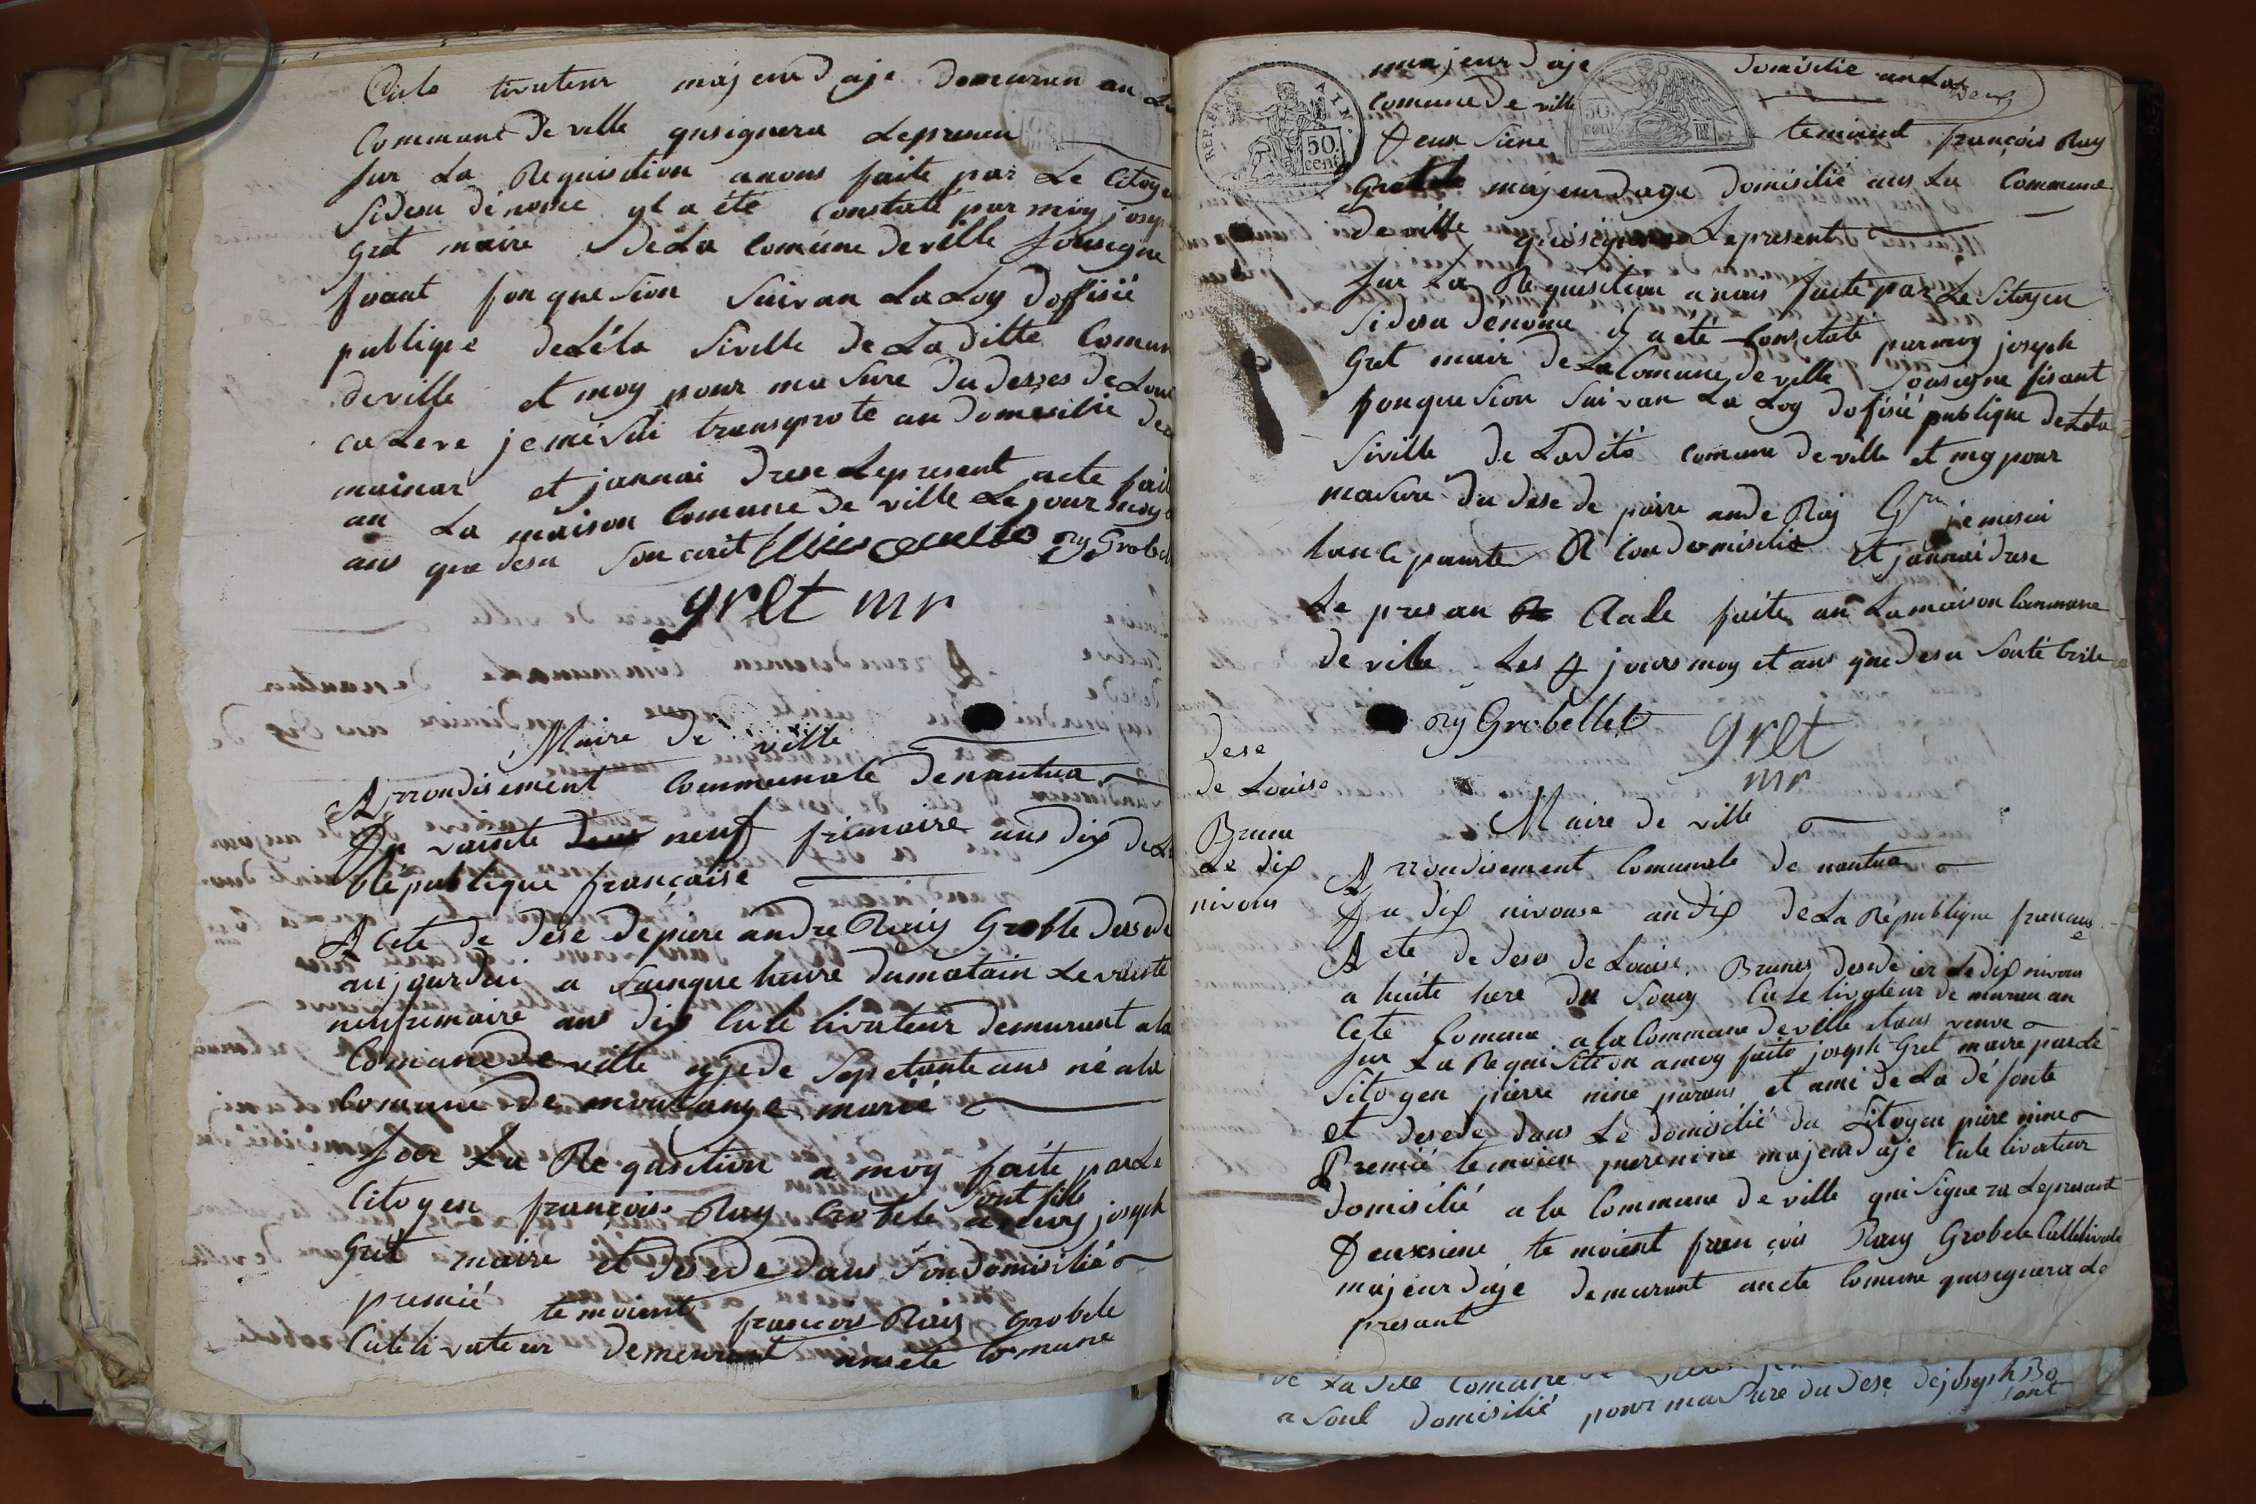 Culte tivuteur majeur d aje demeuran au La
Commune de ville qusignera Lepresen
sur La Requisition anous faite par Le Citoye
sidesu dénomé yl a été Constaté par moy josep
gret maire De La Comune de ville sousigne
fisant fonquesion suivan La Loy doffisié
publique deLéta Siville De Laditte Comun
deville et moy pour ma sure du deses de Loui
caLeve je me sui transporte au domisilie de
mainar et jannai drese Lepresent acte fait
an La maison Comune de ville Le jour moy
ans que desu Sou crit ry Grobel
gret mr
Maire De ville
Arrondisement Communale denantua
Du vainte neuf frimaire ans dix deLa
République française
Acete de dese depiere andre Raiy Groble desede
aujourdui a Sainque heure dumatain Le vainte
neufrimaire ans dix Cule livateur demeurant a la
Comune de ville ajede Sepetante ans né ala
Comune De mourlange marié
sur La Requsition a moy faite parLe
sont fils
Citoyen françois Ray Grobele a moy joseph
Gret maire et desede dans son domisilié
premié temoient françois Raiy Grobele
Culeli vateur demeurant ansete Comune
majeur d aje Domisilie anLa
Comune de ville
Deux
REP. FRA. 50. cent
50. cen
Deux siene temoient françois Ray
majeur dage Domisilié ans La Commune
de ville quisigne Lepresent
sur La Requisition anous faite par Le Sitoyen
sidesu dénomé y a été Constaté parmoy joseph
Gret mair de La Comune de ville sousigne fisant
fonquesion suivan La Loy dofisié publique deLeta
siville de Ladité comune de ville et moy pour
masure du dese de pierre andre Raj Gru je mesui
tance pourte A son domisilie et jannai drese
Le presan Aade faite an La maison Commune
de ville Les 4 jours moy et ans que desu
ry Grobellet gret
mr
dese
de Louise
Brune
Le dix
nivous
Maire de ville
Arrondisement Comunale de nantua
Du dix nivouse an dix de La République francaise
Acte de deses de Louise Brunes desede ier Le dix nivous
a huite here du Souay Cule livateur de muran an
Cete Comune a la Commune de ville etans veuve
sur La Requisition amoy faite joseph Gret maire parLe
Sitoyen pierre nine parans et ami de La défonte
et desede dans Le domisilié du Sitoyen piere nine
Premié temoien pierenine majeur daje Cule livateur
Domisilié a la Commune de ville quisignera Lepresant
Deuxsiene te moient fran çois Ray Grobele Cullelivate
majeur daje demeurant ancete Comune quisegnera Le
presant
de La dite Comune
a soul domisilié pour masure du dese dejoseph Bo